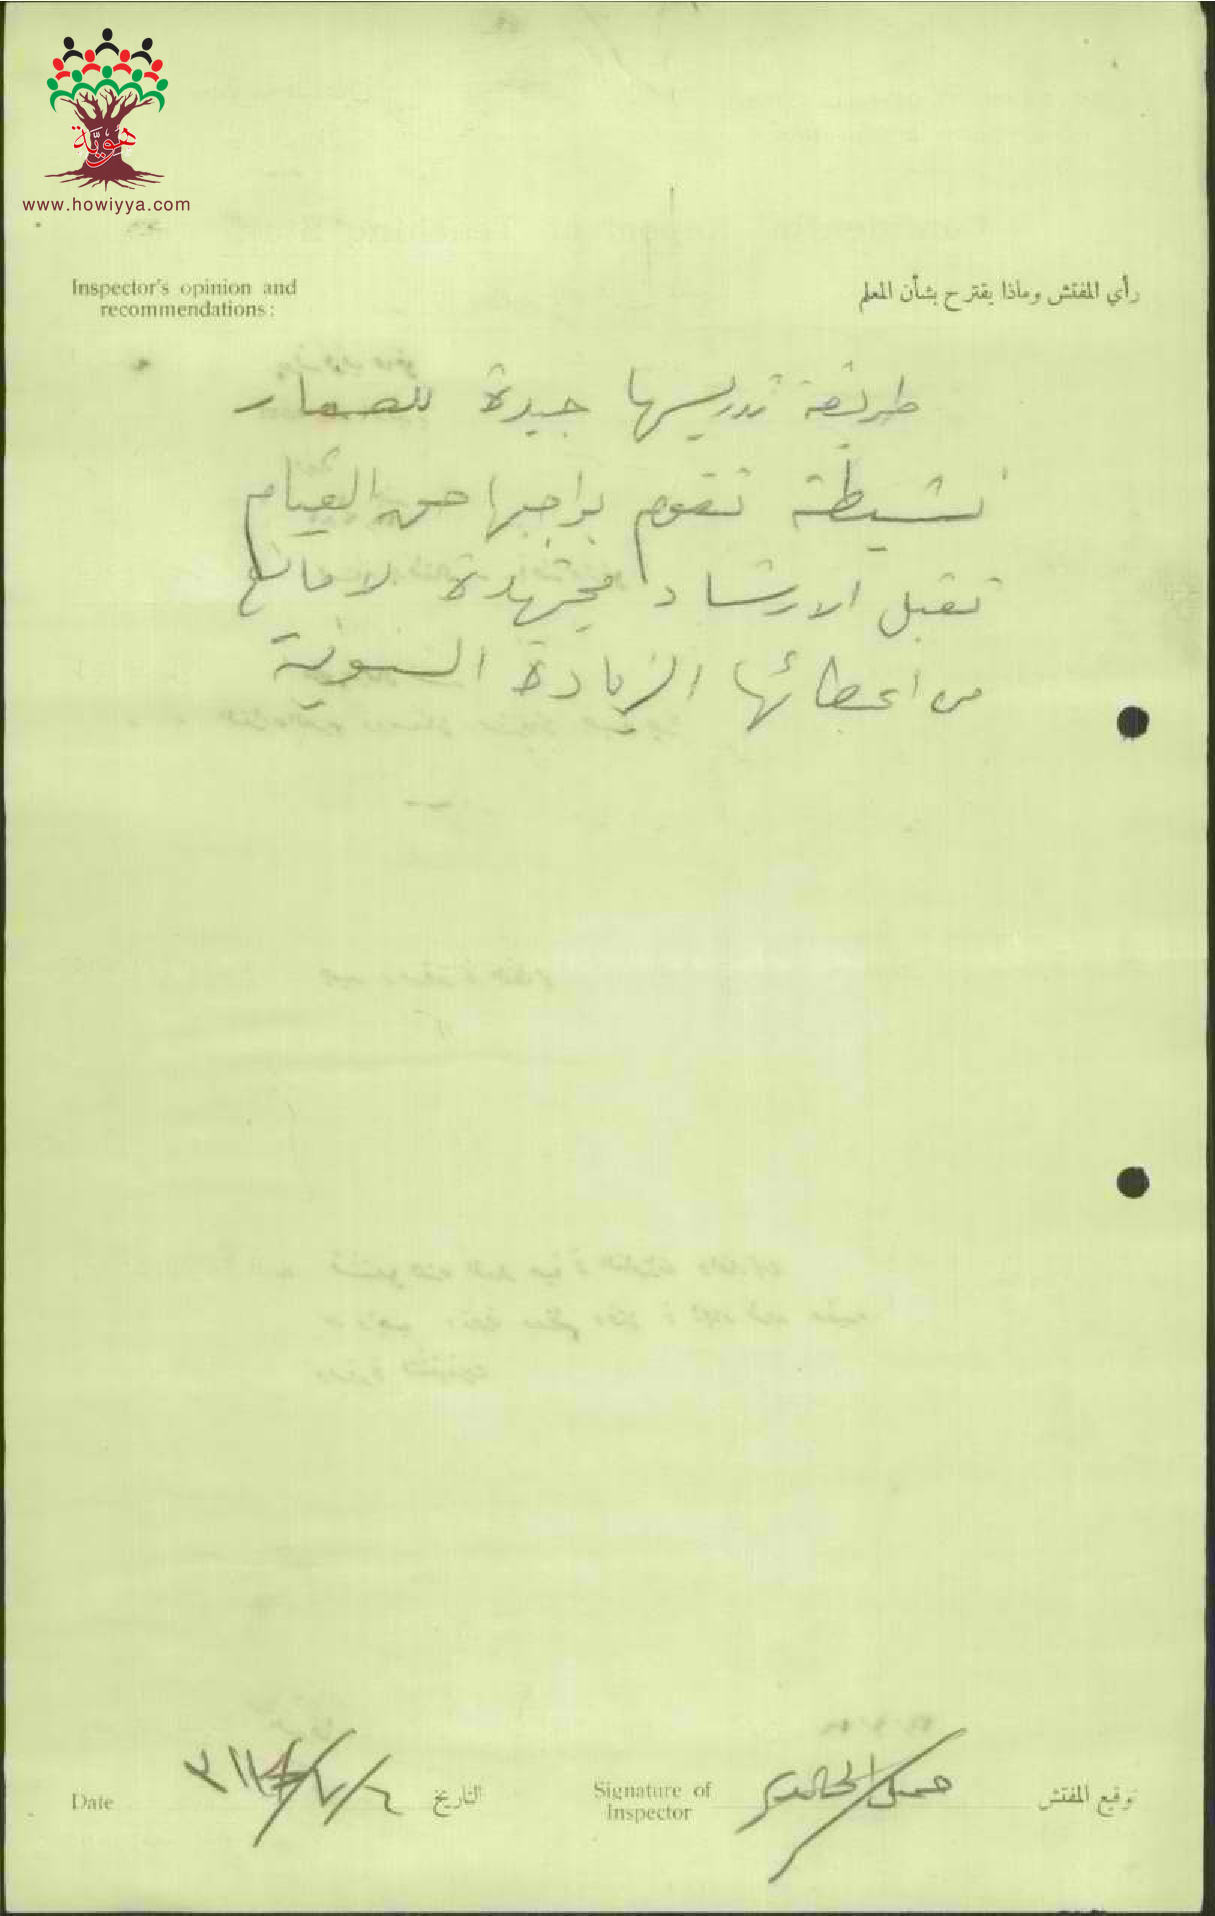 هوية
www.howiyya.com
Inspector's opinion and
recommendations:
رأي المفتش وماذا يقترح بشأن المعلم
طريقة تدريسها جيدة للصغار
نشيطة تقوم بواجبها حق القيام
تقبل الارشاد مجتهدة لا مانع
من اعطائها الزيادة السنوية
Date
التاريخ
Signature of
Inspector
جميل الخالدي
توقيع المفتش